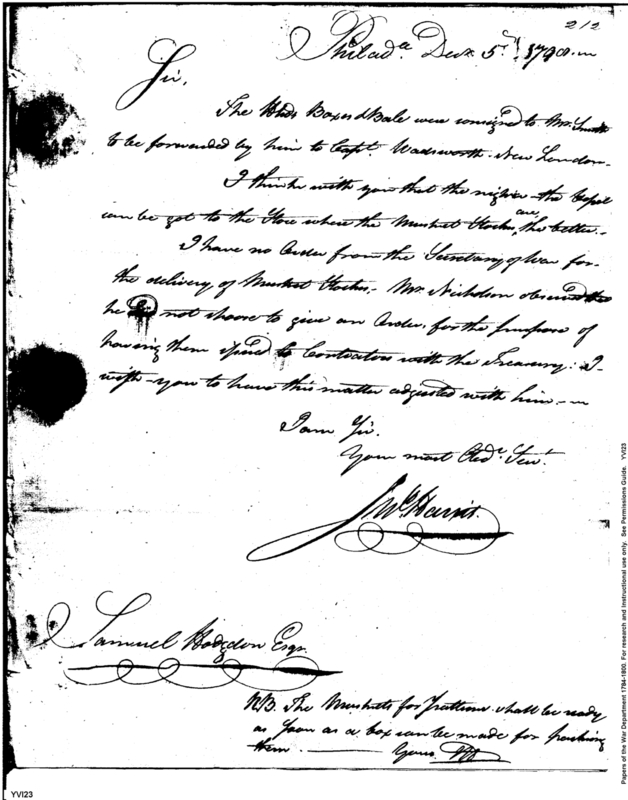 212
Philad.a Decr. 5th. 1798
Sir,
The Hhds Boxes & Bale were consigned to Mr. Smith
to be forwarded by him to Capt. Wadsworth. New London
I think with you that the nigher the
can be got to the Store where the Musket Stocks are, the better.
I have no Order from the Secretary of War for
the delivery of Musket Stocks. Mr. Nicholson observed
he did not choose to give an Order, for the purpose of
having them issued to Contractors with the Treasury: I
wish you to have this matter adjusted with him.
I am Sir.
Your most Obedt. Servt.
Jno. Harris.
Samuel Hodgdon Esqr.
NB. The Musketts for shall be ready
as soon as a box can be made for packing
them. Yours JH
Papers of the War Department 1784-1800. For research and Instructional use only. See Permissions Guide. YVI23
YVI23